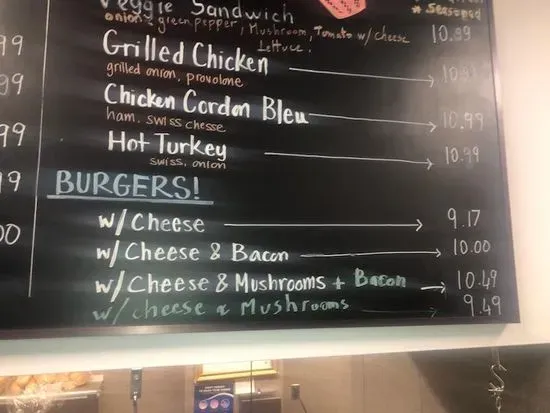 Veggie Sandwich
* Seasoned
onion + green pepper, Mushroom, Tomato w/ cheese 10.99
lettuce,
Grilled Chicken 10.99
grilled onion, provolone
Chicken Cordon Bleu 10.99
ham, swiss chesse
Hot Turkey 10.99
swiss, onion
BURGERS!
w/ Cheese 9.17
w/ Cheese & Bacon 10.00
w/ Cheese & Mushrooms + Bacon 10.49
w/ cheese & Mushrooms 9.49
99
99
99
9
00